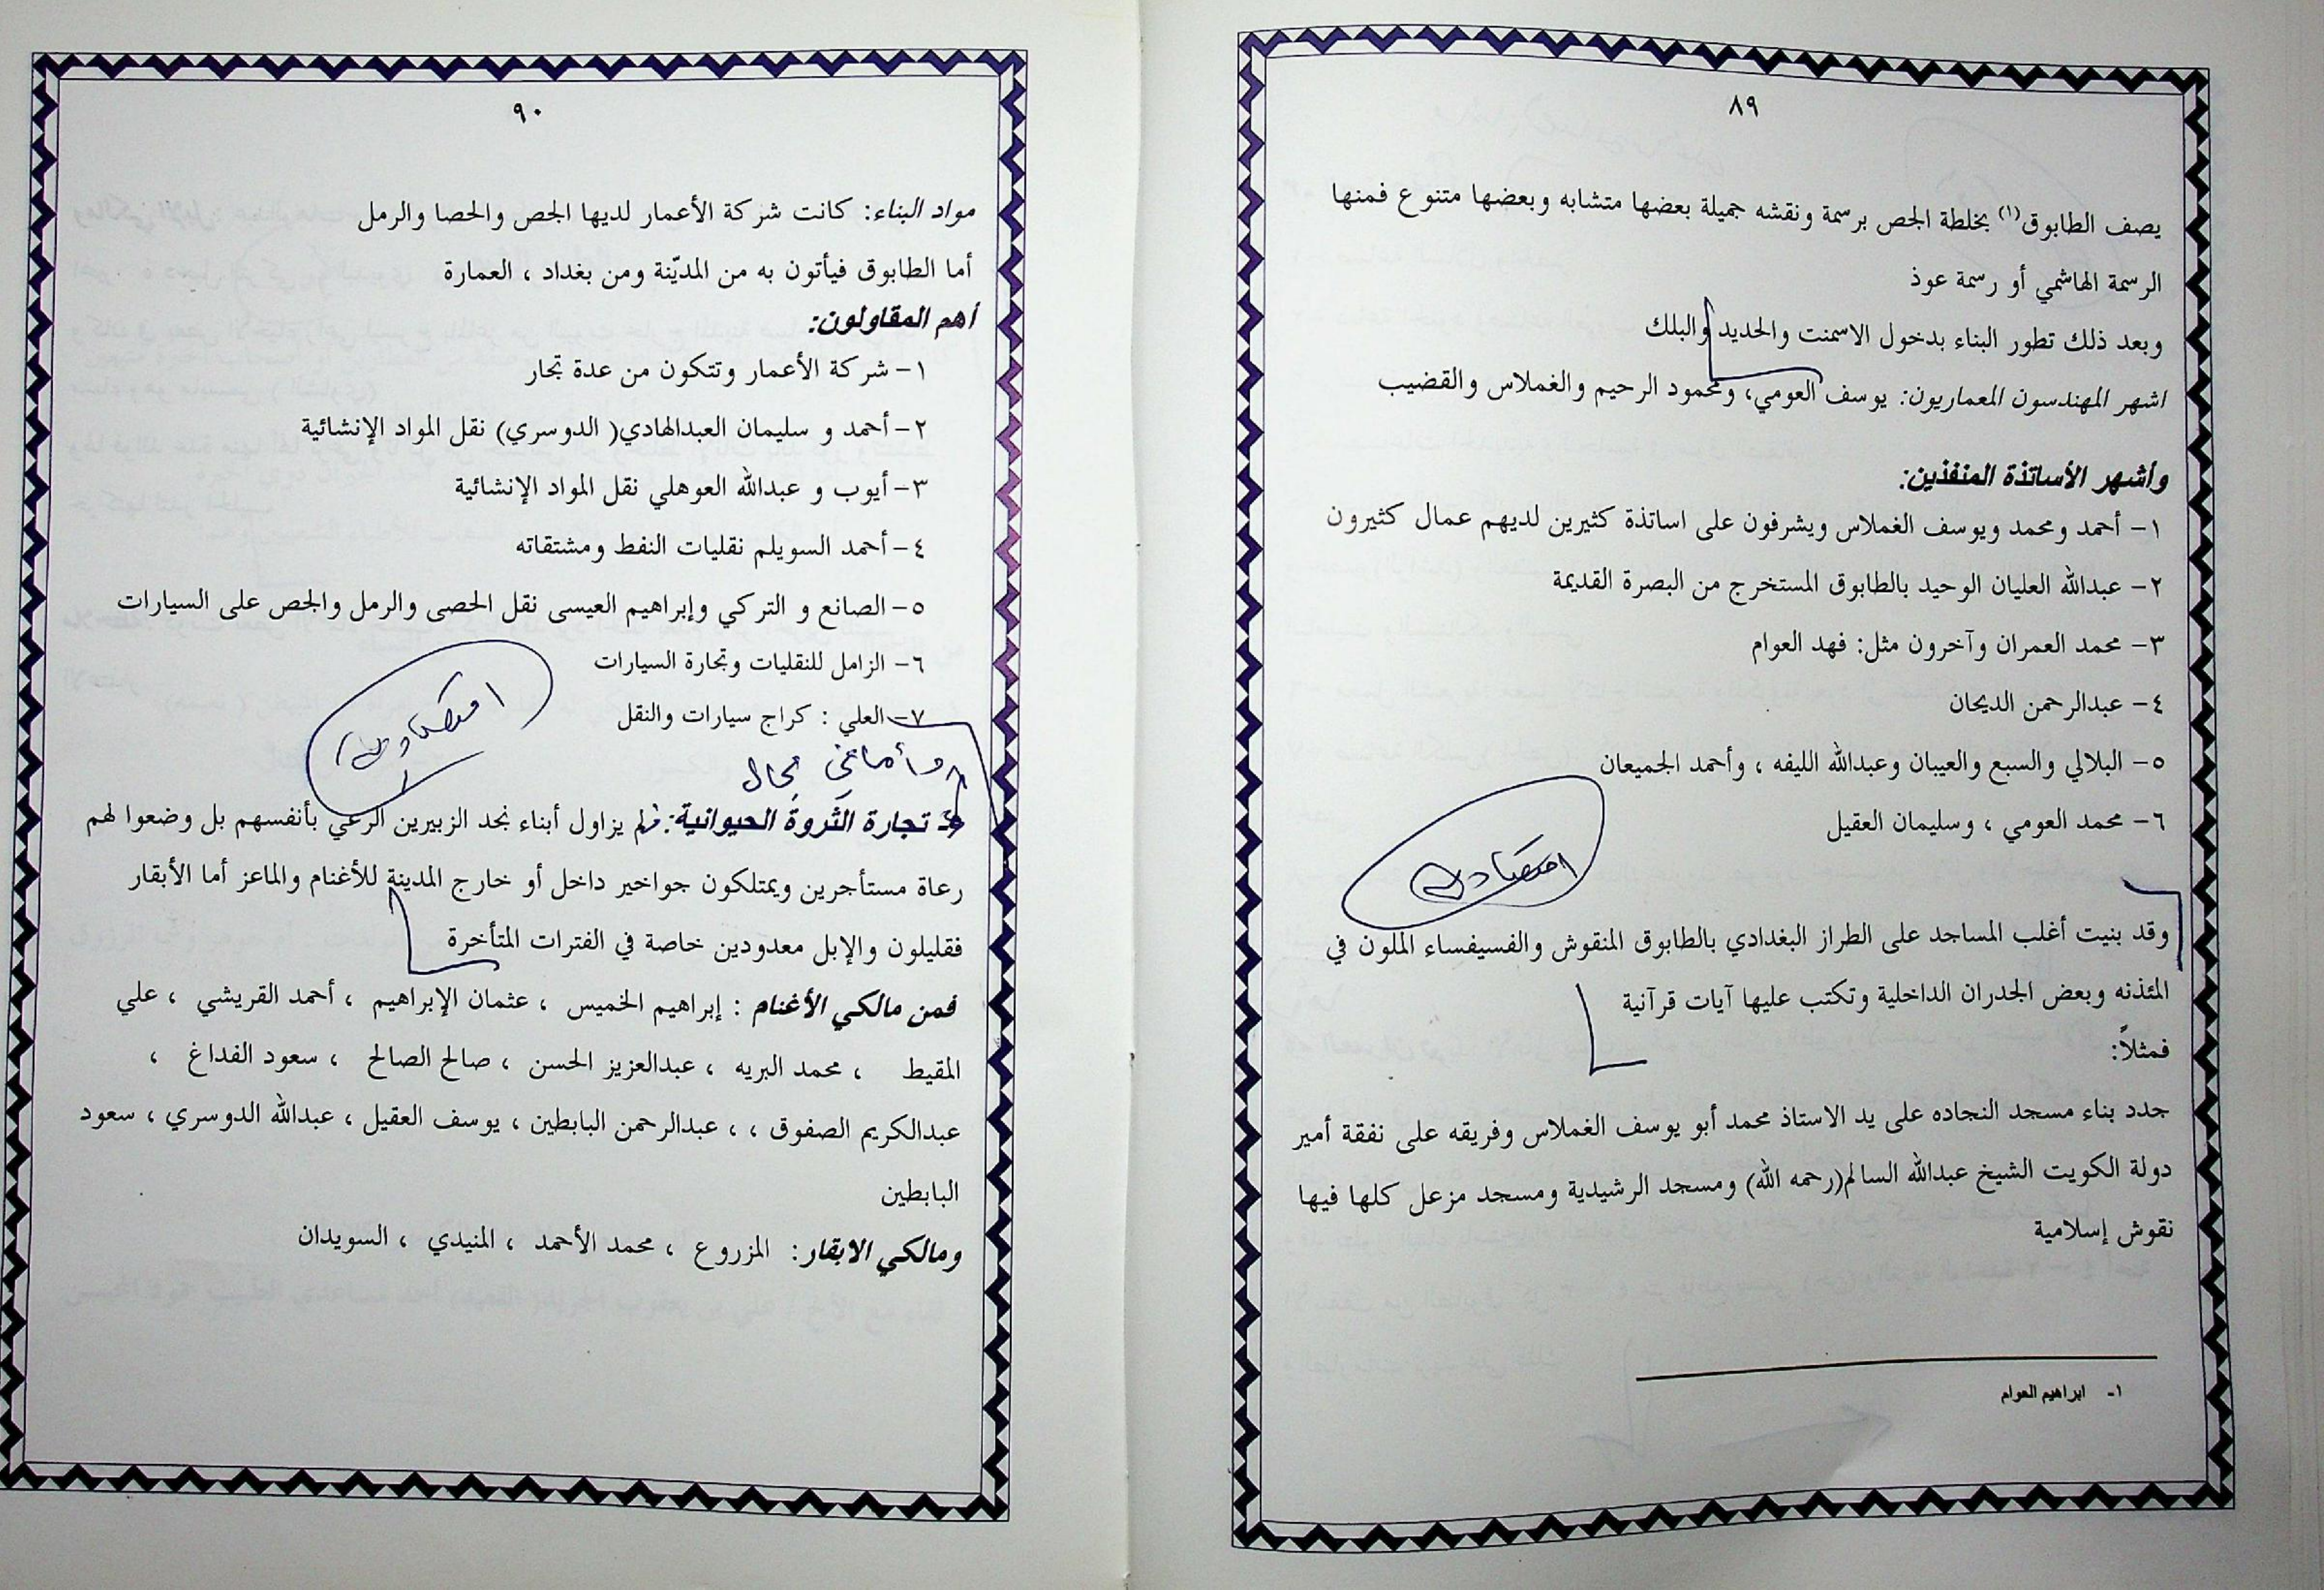 ٨٩
يصف الطابوق(١) بخلطة الجص برسمة ونقشه جميلة بعضها متشابه وبعضها متنوع فمنها
الرسمة الهاشمي أو رسمة عوذ
وبعد ذلك تطور البناء بدخول الاسمنت والحديد والبلك
اشهر المهندسون المعماريون: يوسف العومي، ومحمود الرحيم والغملاس والقضيب
وأشهر الأساتذة المنفذين:
١- أحمد ومحمد ويوسف الغملاس ويشرفون على اساتذة كثيرين لديهم عمال كثيرون
٢- عبدالله العليان الوحيد بالطابوق المستخرج من البصرة القديمة
٣- محمد العمران وآخرون مثل: فهد العوام
٤- عبدالرحمن الديحان
٥- البلالي والسبع والعيبان وعبدالله الليفه ، وأحمد الجميعان
٦- محمد العومي ، وسليمان العقيل
اقتصادية
وقد بنيت أغلب المساجد على الطراز البغدادي بالطابوق المنقوش والفسيفساء الملون في
المئذنه وبعض الجدران الداخلية وتكتب عليها آيات قرآنية
فمثلاً:
جدد بناء مسجد النجاده على يد الاستاذ محمد أبو يوسف الغملاس وفريقه على نفقة أمير
دولة الكويت الشيخ عبدالله السالم(رحمه الله) ومسجد الرشيدية ومسجد مزعل كلها فيها
نقوش إسلامية
١- ابراهيم العوام
٩٠
مواد البناء: كانت شركة الأعمار لديها الجص والحصا والرمل
أما الطابوق فيأتون به من المديّنة ومن بغداد ، العمارة
أهم المقاولون:
١- شركة الأعمار وتتكون من عدة تجار
٢- أحمد و سليمان العبدالهادي( الدوسري) نقل المواد الإنشائية
٣- أيوب و عبدالله العوهلي نقل المواد الإنشائية
٤- أحمد السويلم نقليات النفط ومشتقاته
٥- الصانع و التركي وإبراهيم العيسى نقل الحصى والرمل والجص على السيارات
٦- الزامل للنقليات وتجارة السيارات
٧- العلي : كراج سيارات والنقل
اقتصادية
وأما في مجال
تجارة الثروة الحيوانية: لم يزاول أبناء نجد الزبيرين الرعي بأنفسهم بل وضعوا لهم
رعاة مستأجرين ويمتلكون جواخير داخل أو خارج المدينة للأغنام والماعز أما الأبقار
فقليلون والإبل معدودين خاصة في الفترات المتأخرة
فمن مالكي الأغنام : إبراهيم الخميس ، عثمان الإبراهيم ، أحمد القريشي ، علي
المقيط ، محمد البريه ، عبدالعزيز الحسن ، صالح الصالح ، سعود الفداغ ،
عبدالكريم الصفوق ، ، عبدالرحمن البابطين ، يوسف العقيل ، عبدالله الدوسري ، سعود
البابطين
ومالكي الابقار: المزروع ، محمد الأحمد ، المنيدي ، السويدان